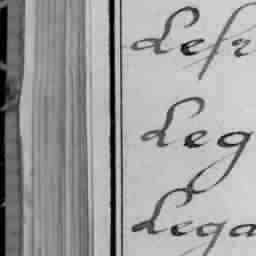 Defr
Leg
Lega